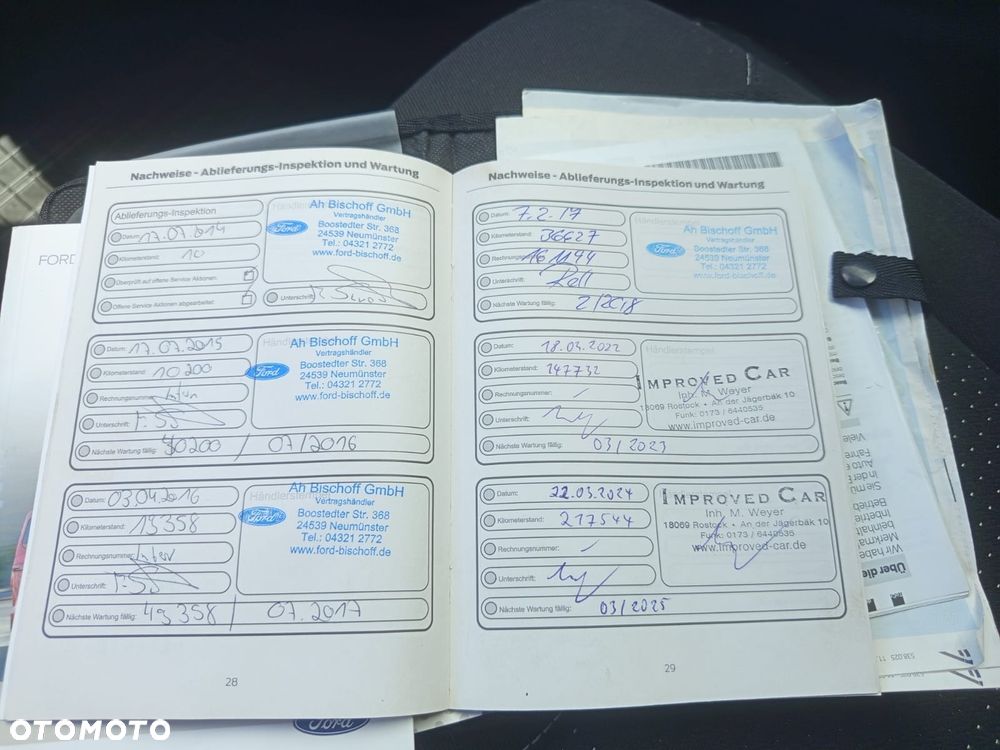 Nachweise - Ablieferungs-Inspektion und Wartung
Ablieferungs-Inspektion
Datum: 17.07.2014
Kilometerstand: 10
Überprüft auf offene Service Aktionen:
Offene Service Aktionen abgearbeitet:
Ah Bischoff GmbH
Vertragshändler
Ford
Boostedter Str. 368
24539 Neumünster
Tel.: 04321 2772
www.ford-bischoff.de
Unterschrift:
Datum: 17.07.2015
Kilometerstand: 10200
Rechnungsnummer:
Unterschrift:
Ah Bischoff GmbH
Vertragshändler
Ford
Boostedter Str. 368
24539 Neumünster
Tel.: 04321 2772
www.ford-bischoff.de
Nächste Wartung fällig: 40200 / 07/2016
Datum: 03.04.2016
Kilometerstand: 19358
Rechnungsnummer:
Unterschrift:
Händlerstempel
Ah Bischoff GmbH
Vertragshändler
Ford
Boostedter Str. 368
24539 Neumünster
Tel.: 04321 2772
www.ford-bischoff.de
Nächste Wartung fällig: 49358 / 07.2017
28
Nachweise - Ablieferungs-Inspektion und Wartung
Datum: 7.2.17
Kilometerstand: 36627
Rechnungsnummer: 161144
Unterschrift:
Händlerstempel
Ah Bischoff GmbH
Vertragshändler
Ford
Boostedter Str. 368
24539 Neumünster
Tel.: 04321 2772
www.ford-bischoff.de
Nächste Wartung fällig: 2/2018
Datum: 18.03.2022
Kilometerstand: 147732
Rechnungsnummer: /
Unterschrift:
Händlerstempel
IMPROVED CAR
Inh. M. Weyer
18069 Rostock • An der Jägerbäk 10
Funk: 0173 / 6440535
www.improved-car.de
Nächste Wartung fällig: 03/2023
Datum: 22.03.2024
Kilometerstand: 217544
Rechnungsnummer: /
Unterschrift:
IMPROVED CAR
Inh. M. Weyer
18069 Rostock • An der Jägerbäk 10
Funk: 0173 / 6440535
www.improved-car.de
Nächste Wartung fällig: 03/2025
29
FORD
Viele
Fahre
Auto
Siemü
Betrieb
Inbetri
beinhalt
Merkmal
Wir habe
Über die
Ford
OTOMOTO